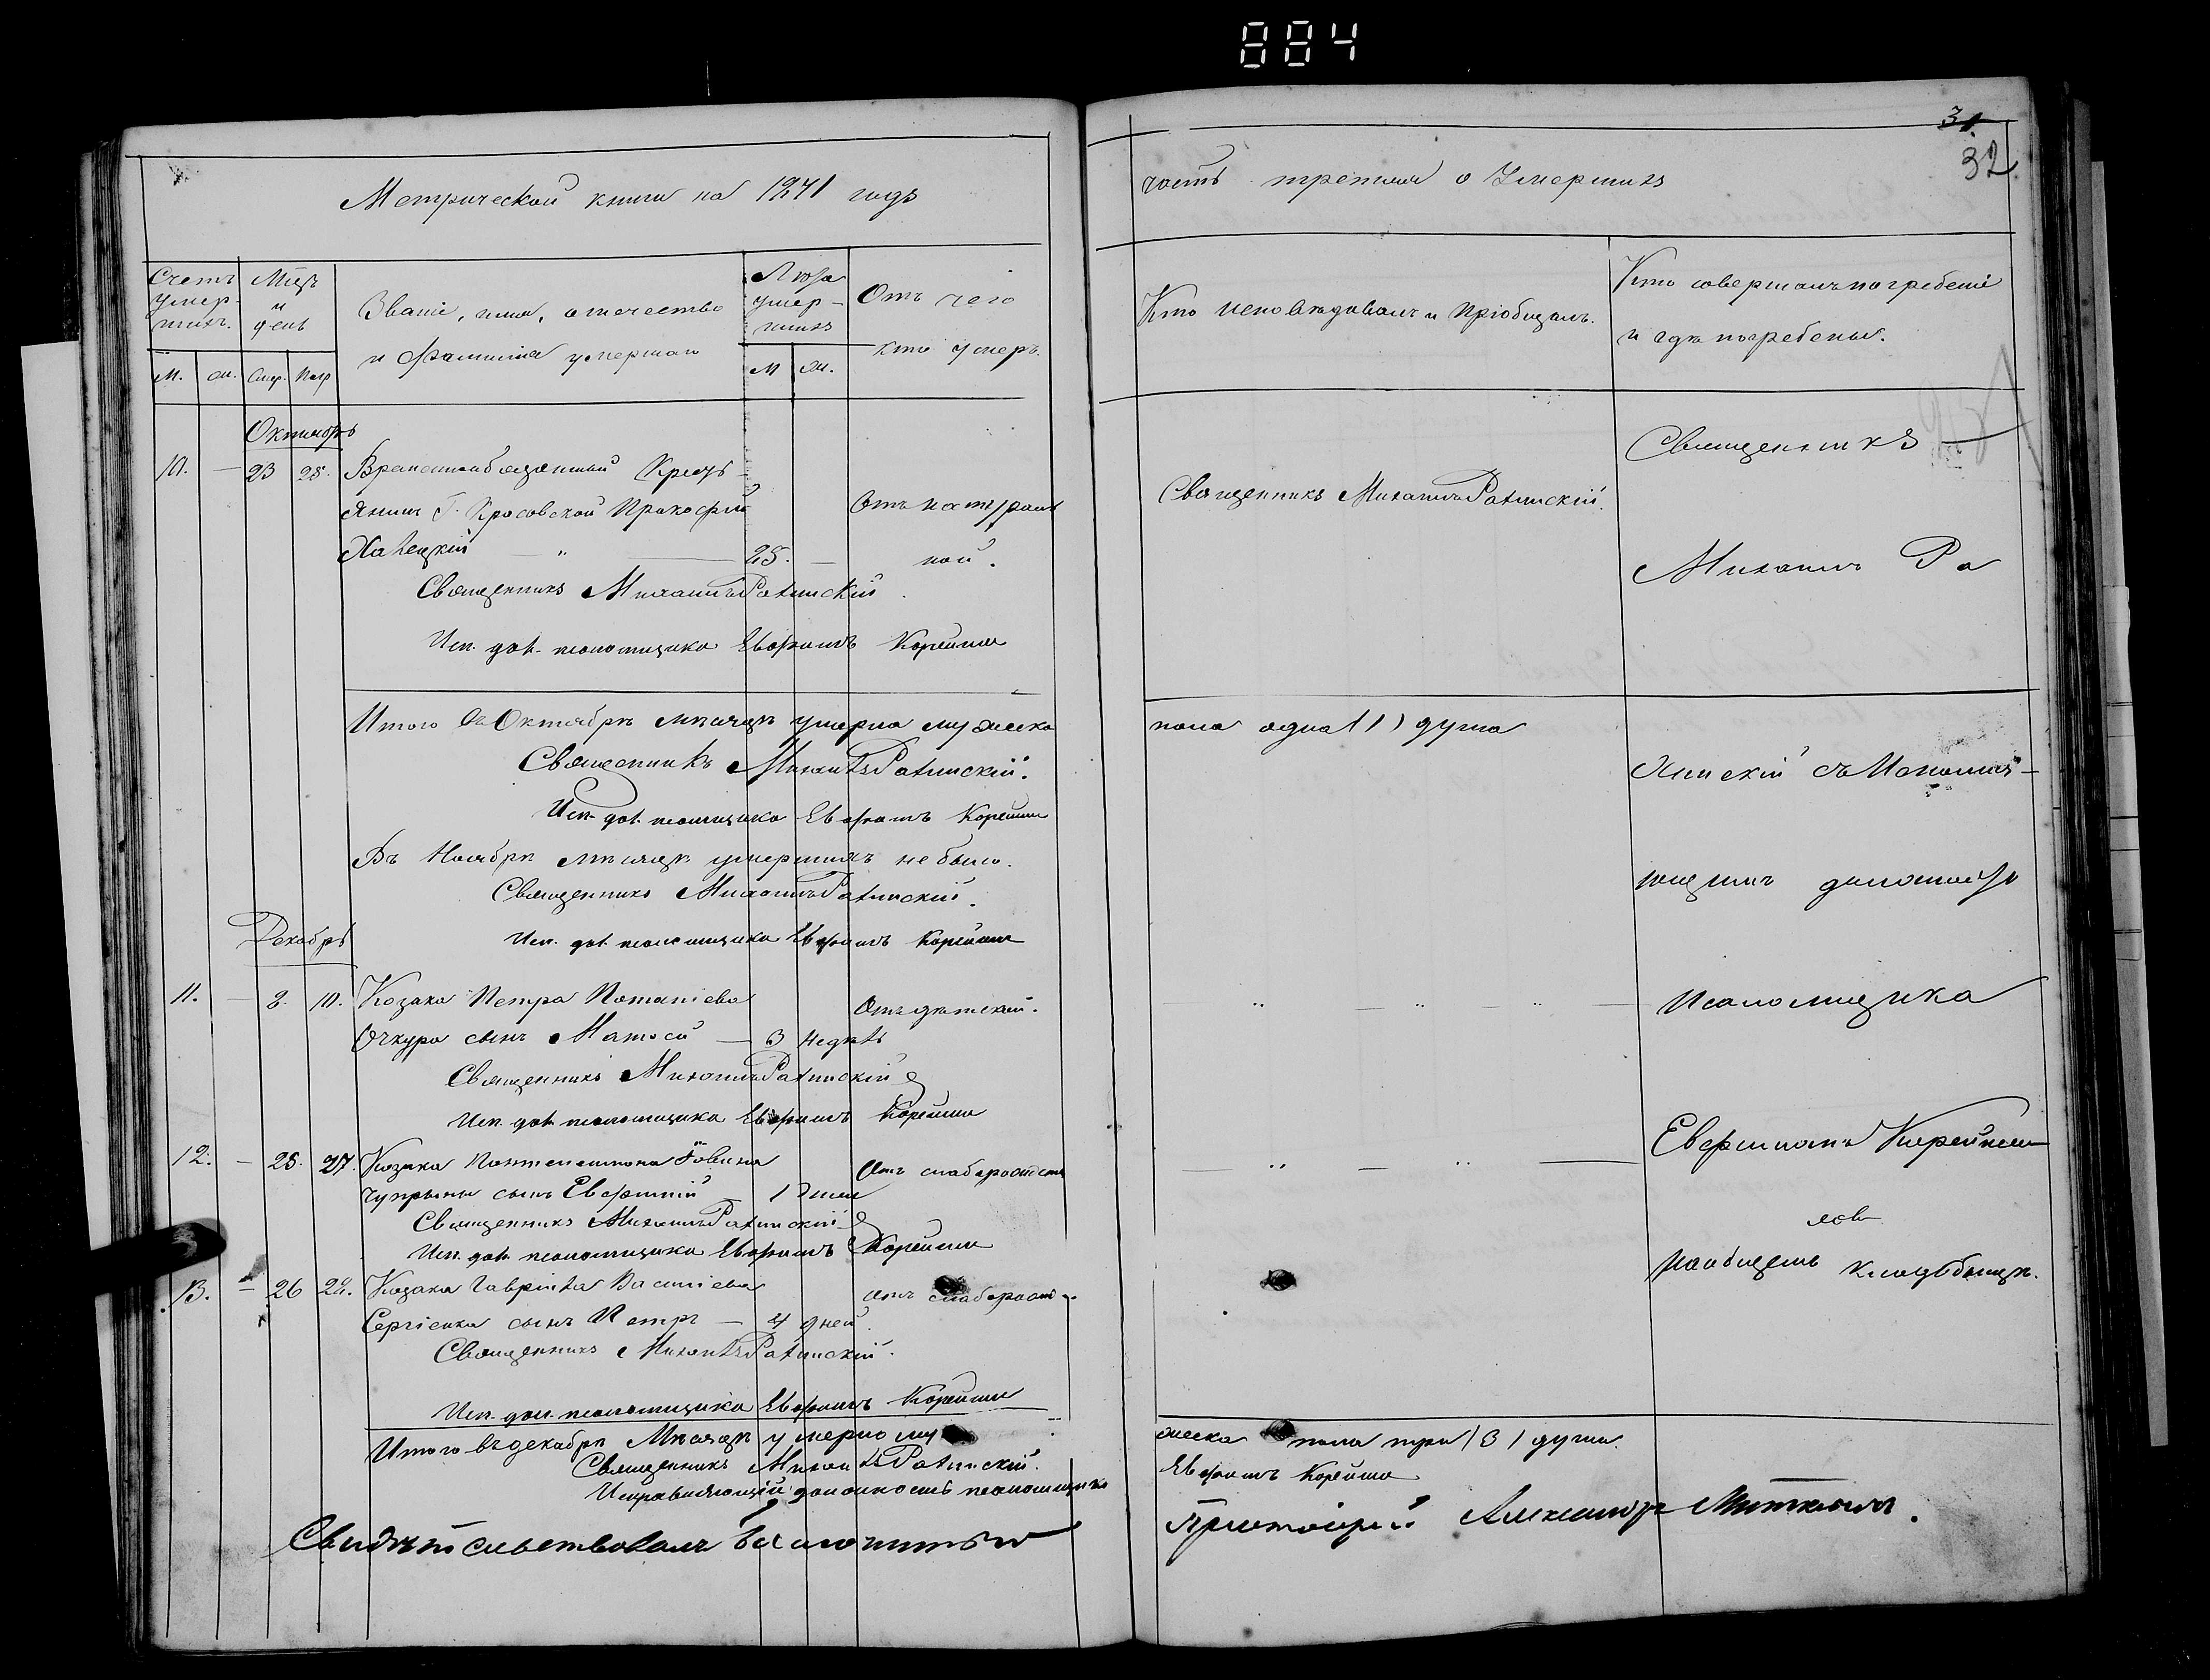 884
31.
32
Метрической книги на 1871 годъ
часть третия о Умершихъ
Счетъ умер-шихъ.
Мцъ и день
Званіе, имя, отчество
и фамилія умершаго
Лѣта умер-шихъ
Отъ чего
кто умеръ.
Кто исповѣдывалъ и пріобщалъ.
Кто совершалъ погребеніе
и гдѣ погребены.
М. Ж. Смер. Погр М Ж.
Октябрь
10. — 23 25. Временнообязанный Кресть-
янинъ Г. Красовской Прокофій Отъ натураль
Ханецкій — " — 25. — ной.
Священникъ Михаилъ Ратинскій
Исп. дол. псаломщика Евфимъ Корейша
Священникъ Михаилъ Ратинскій.
Священникъ —
Михаилъ Ра
Итого въ Октябрѣ мѣсяцѣ умерла мужеска
пола одна (1) душа
Священникъ Михаилъ Ратинскій.
Исп. дол. псаломщика Евфимъ Корейша
Въ Ноябрѣ мѣсяцѣ умершихъ не было.
Священникъ Михаилъ Ратинскій.
Исп. дол. псаломщика Евфимъ Корейша
Декабрь
11. — 8. 10. Козака Петра Потапіева Отъ дѣтской.
Очкура сынъ Матѳей — 3 недѣль
Священникъ Михаилъ Ратинскій
Исп. дол. псаломщика Евфимъ Корейша
12. — 25. 27. Козака Пантелеимона Іовина Отъ слаборост
Чупрыны сынъ Евфимій — 1 дня
Священникъ Михаилъ Ратинскій
Исп. дол. псаломщика Евфимъ Корейша
13. — 26 28. Козака Гавріила Василіева отъ слаборост
Сергіенка сынъ Петръ — 4 дней.
Священникъ Михаилъ Ратинскій.
Исп. дол. псаломщика Евфимъ Корейша
псаломщика
Евфимомъ Корейшею
на общемъ кладбищѣ.
Итого въ декабрѣ Мѣсяцѣ умерло му
жеска пола три (3) души.
Священникъ Михаилъ Ратинскій.
Исправляющій должность псаломщика
Евфимъ Корейша
Свидѣтельствовалъ Благочинный
Протоіерей Александръ